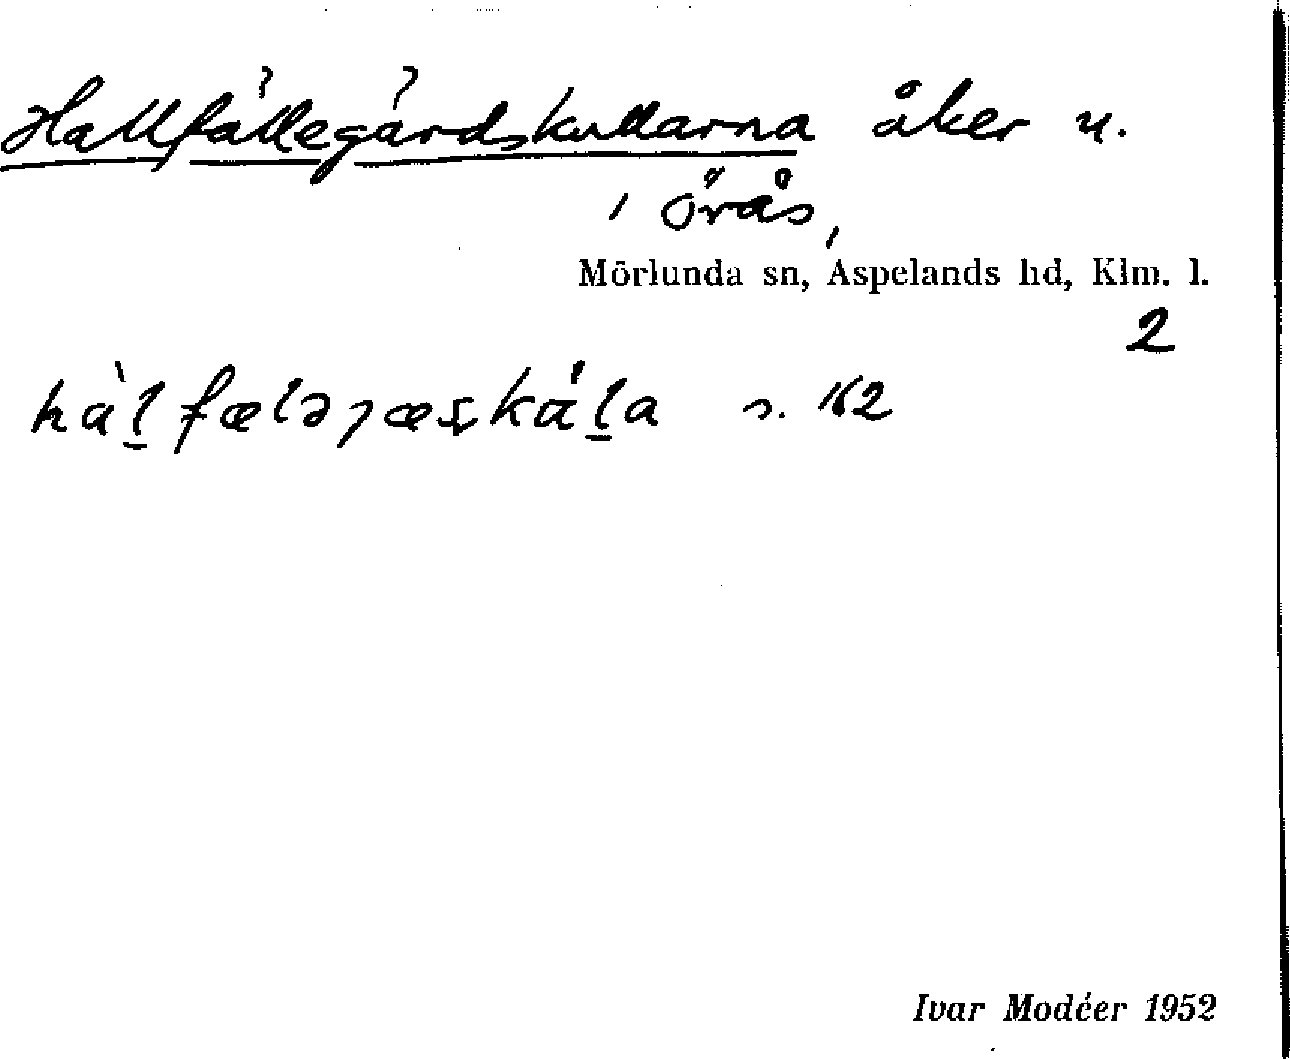 Hallfällegärdskullarna åker u.
i Örås,
Mörlunda sn, Aspelands hd, Klm. l.
2
s. 162
Ivar Modéer 1952